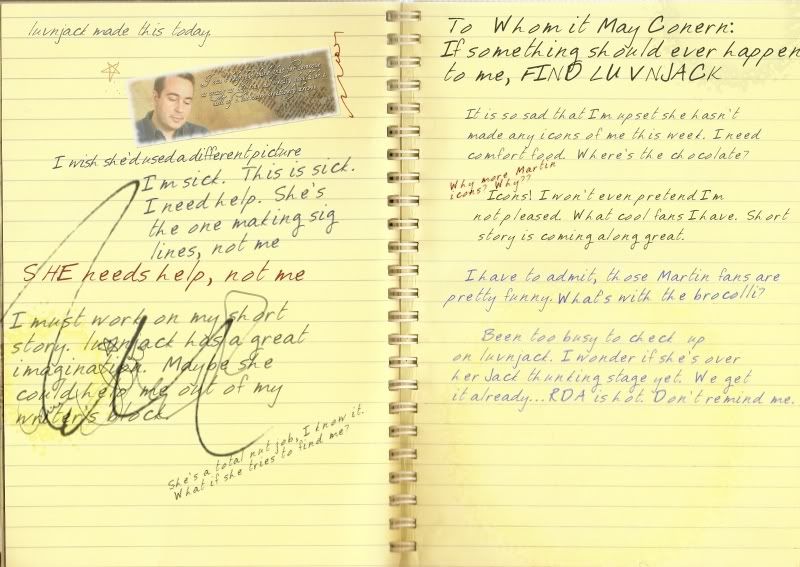 luvnjack made this today.
I wish she'd used a different picture
I'm sick. This is sick.
I need help. She's
the one making sig
lines, not me
SHE needs help, not me
I must work on my short
story. luvnjack has a great
imagination. Maybe she
could help me out of my
writer's block.
She's a total nut job, I know it.
What if she tries to find me?
To Whom it May Conern:
If something should ever happen
to me, FIND LUVNJACK
It is so sad that I'm upset she hasn't
made any icons of me this week. I need
comfort food. Where's the chocolate?
Why more Martin
icons? Why??
Icons! I won't even pretend I'm
not pleased. What cool fans I have. Short
story is coming along great.
I have to admit, those Martin fans are
pretty funny. What's with the brocolli?
Been too busy to check up
on luvnjack. I wonder if she's over
her Jack thunking stage yet. We get
it already...RDA is hot. Don't remind me.